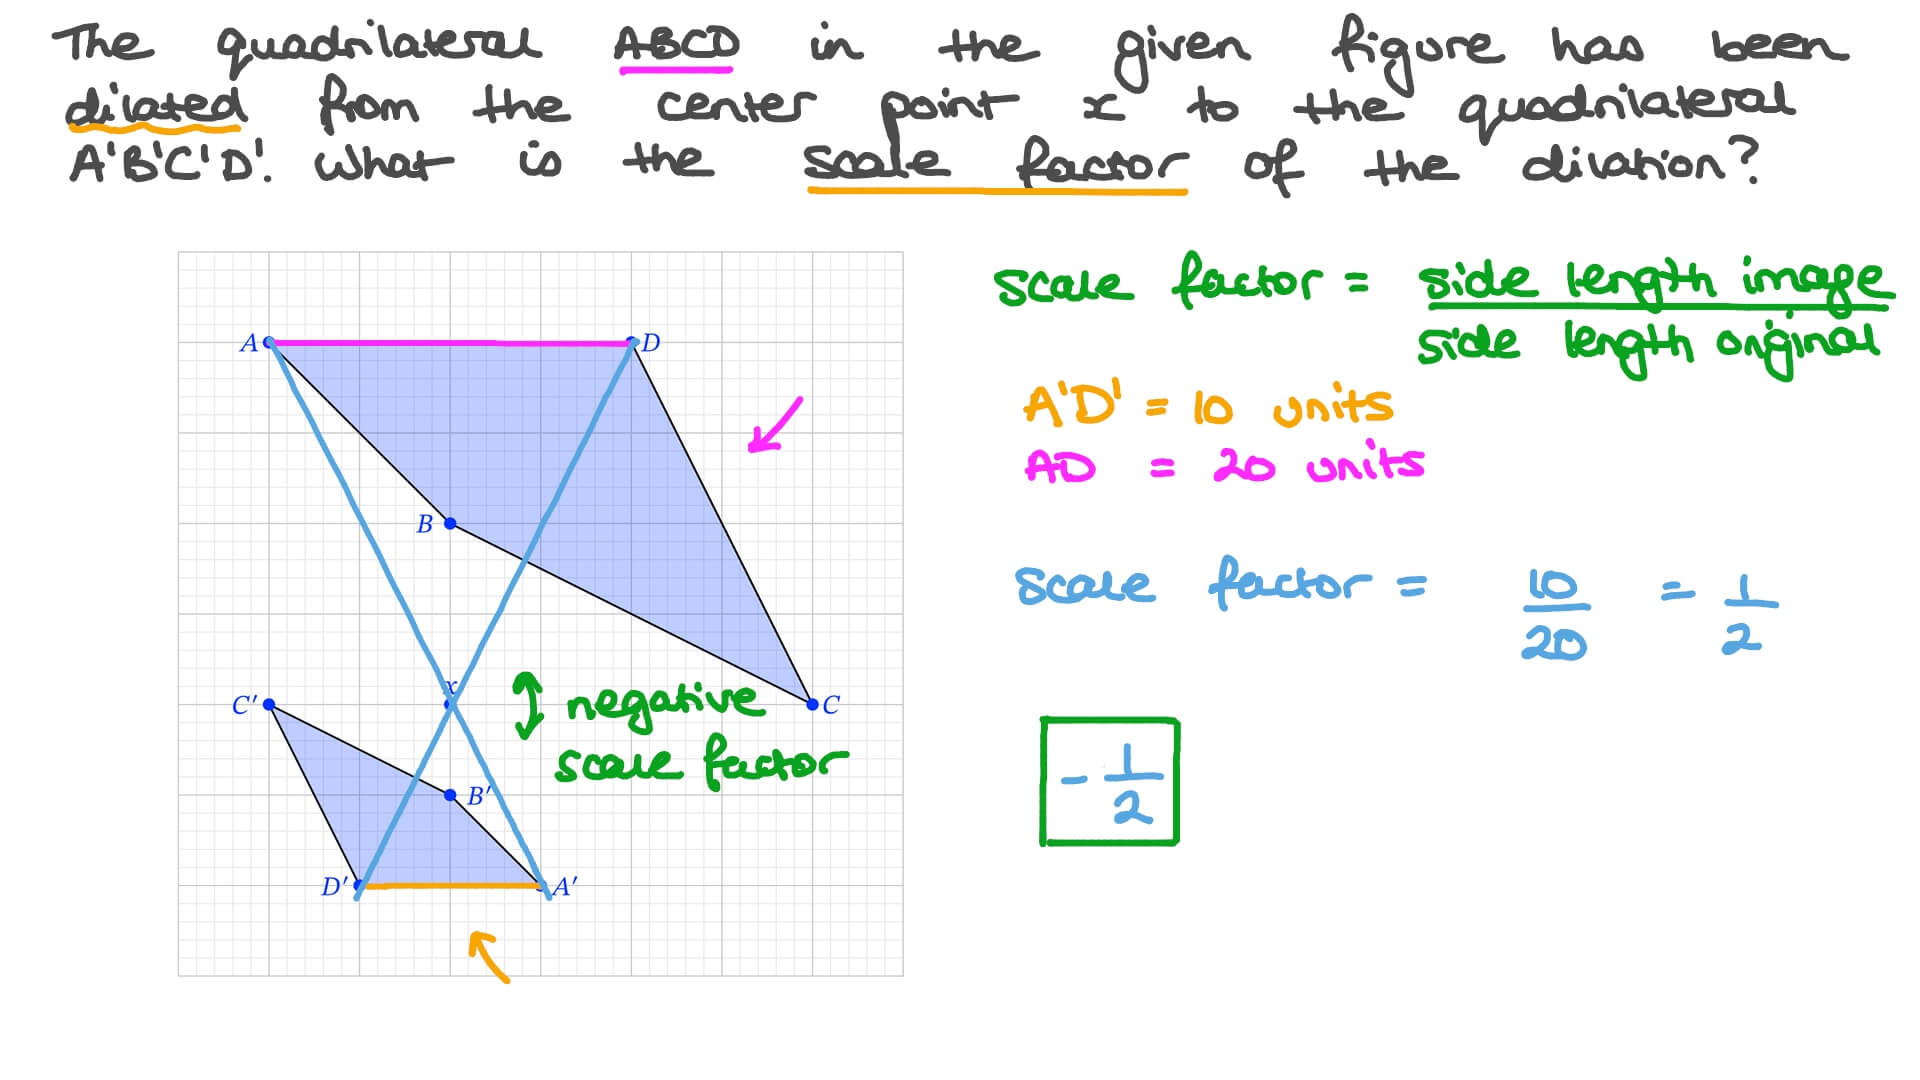 The quadrilateral ABCD in the given figure has been
dilated from the center point x to the quadrilateral
A'B'C'D'. What is the scale factor of the dilation?
scale factor = side length image
side length original
A'D' = 10 units
AD = 20 units
scale factor = 10/20 = 1/2
- 1/2
A
D
B
x
C'
C
negative
scale factor
B'
D'
A'